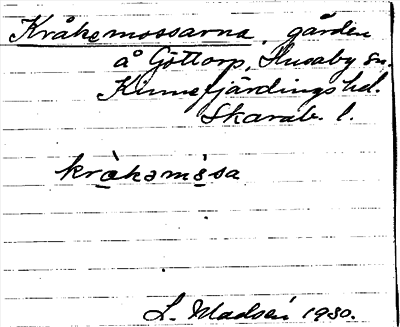 Kråkemossarna, gärden
å Göttorp, Husaby sn.
Kinnefjärdings hd.
Skarab. l.
kråkəmo̊sa
L. Madsén 1930.